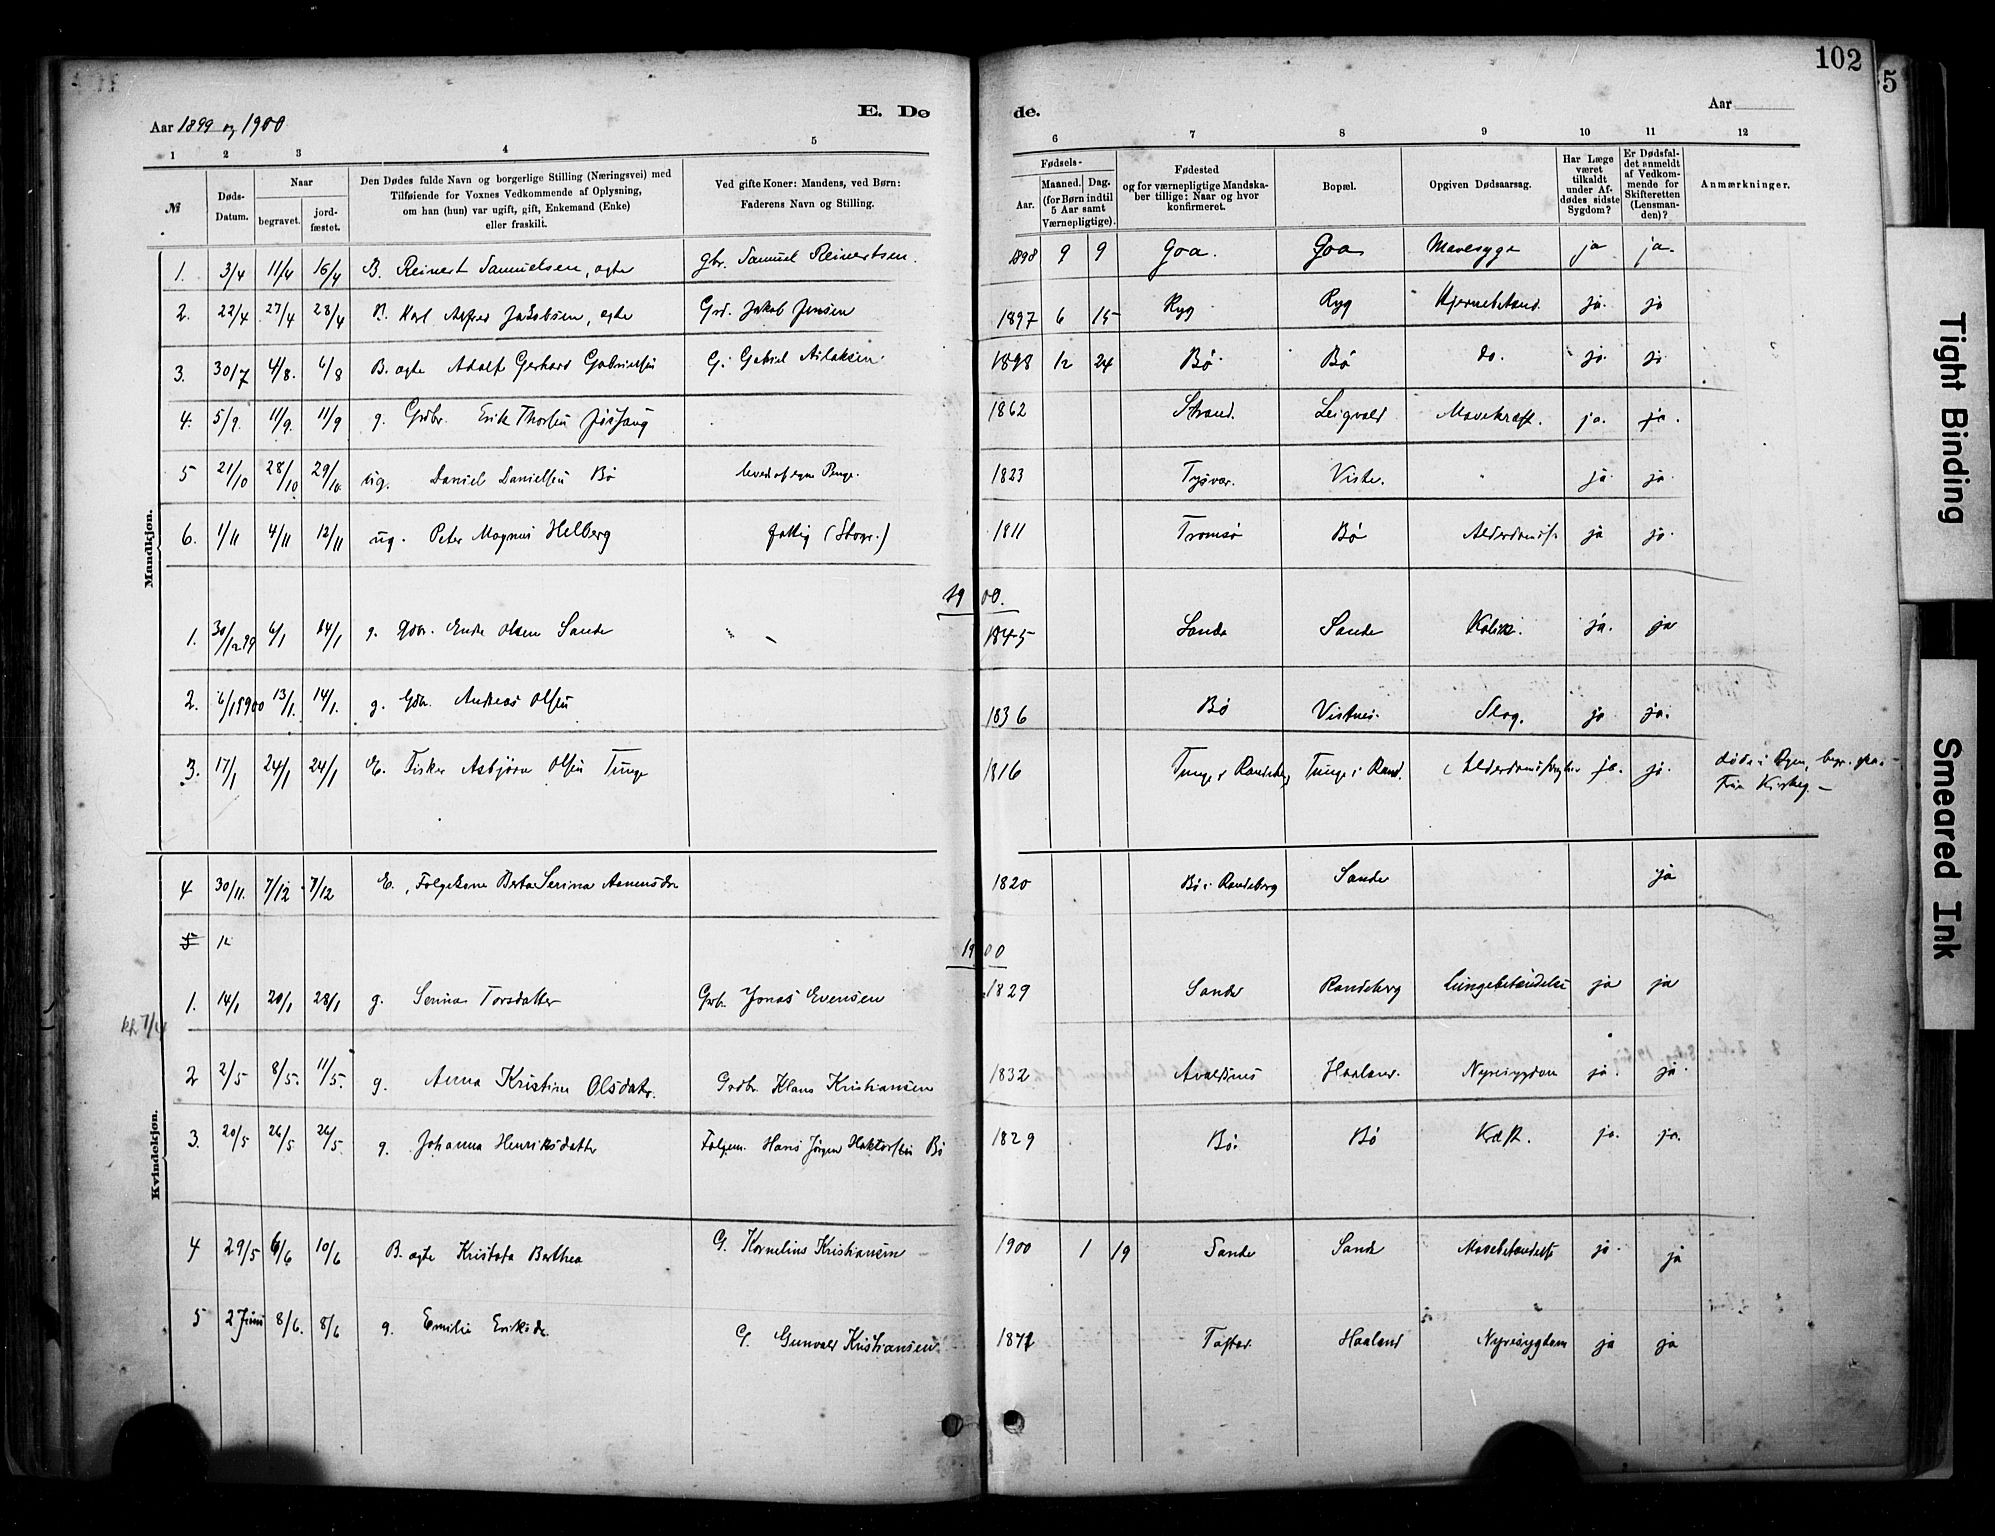 102
5
E. Dø de.
Aar 1899 og 1900
Aar
1 2 3 4 5 6 7 8 9 10 11 12
№
Døds-Datum.
Naar
begravet.
jord-fæstet.
Den Dødes fulde Navn og borgerlige Stilling (Næringsvei) med
Tilføiende for Voxnes Vedkommende af Oplysning,
om han (hun) var ugift, gift, Enkemand (Enke)
eller fraskilt.
Ved gifte Koner: Mandens, ved Børn:
Faderens Navn og Stilling.
Fødsels-
Aar.
Maaned. Dag.
(for Børn indtil
5 Aar samt
Værnepligtige).
Fødested
og for værnepligtige Mandska-
ber tillige: Naar og hvor
konfirmeret.
Bopæl.
Opgiven Dødsaarsag.
Har Læge
været
tilkaldt
under Af-
dødes sidste
Sygdom?
Er Dødsfal-
det anmeldt
af Vedkom-
mende for
Skifteretten
(Lensman-
den)?
Anmærkninger.
Mandkjøn.
1. 3/4 11/4 16/4 B. Reinert Samuelsen, ægte gbr. Samuel Reinertsen. 1898 9 9 Goa. Goa Mavesyge ja ja.
2. 22/4 27/4 28/4 B. Karl Alfred Jakobsen, ægte Grd. Jakob Jensen 1897 6 15 Ryg Ryg Hjernebetænd. ja. ja
3. 30/7 4/8. 6/8 B. ægte Adolf Gerhard Gabrielsen G. Gabriel Aslaksen. 1898 12 24 Bø. Bø do. ja. ja
4. 5/9. 11/9. 11/9 g. Grdbr. Erik Thorsen 1862 Strand. Leigvold Mavekræft. ja. ja.
5 21/10 28/10 29/10. ug. Daniel Danielsen Bø leved af egne Penge. 1823 Tysvær. Viste. ja. ja.
6. 1/11 4/11 12/11 ug. Peter Magnus Helberg fattig 1811 Tromsø Bø ja ja.
1900.
1. 30/12 99 6/1 14/1 g. Gdbr. Endre Olsen Sande 1845 Sande Sande Kolik. ja. ja
2. 6/1 1900 13/1. 14/1. g. Gdbr. Andreas Olsen 1836 Bø Vistnes. Slag. ja ja.
3. 17/1 24/1 24/1 E. Fisker Asbjørn Olsen Tunge 1816 Tunge i Randeberg Tunge i Rand. ja. ja. døde i
Kvindekjøn.
4 30/11. 7/12 7/12 E., Folgekone Berta Serina Asmundsdr 1820 Bø i Randeberg Sande ja
5 12
1900
1. 14/1 20/1 28/1 g. Serina Torsdatter Grbr. Jonas Evensen 1829 Sande Randeberg Lungebetændelse ja ja
2 2/5 8/5. 11/5. g. Anna Kristine Olsdatr. Grdbr. Klaus Kristiansen 1832 Avaldsnes Haaland. Nyresygdom ja. ja.
3. 20/5 26/5 26/5. g. Johanna Henriksdatter Folgem. Hans Jörgen Haktorsen Bø 1829 Bø. Bø Kræft. ja. ja.
4 29/5 6/6 10/6 B. ægte Kristofa Berthea G. Kornelius Kristiansen 1900 1 19 Sande Sande Mavebetændelse ja. ja
5 2 Juni 8/6. 8/6 g. Emilie Eriksdr. G. Gunvald Kristiansen. 1872 Tastad. Haaland Nyresygdom ja ja
Tight Binding
Smeared Ink